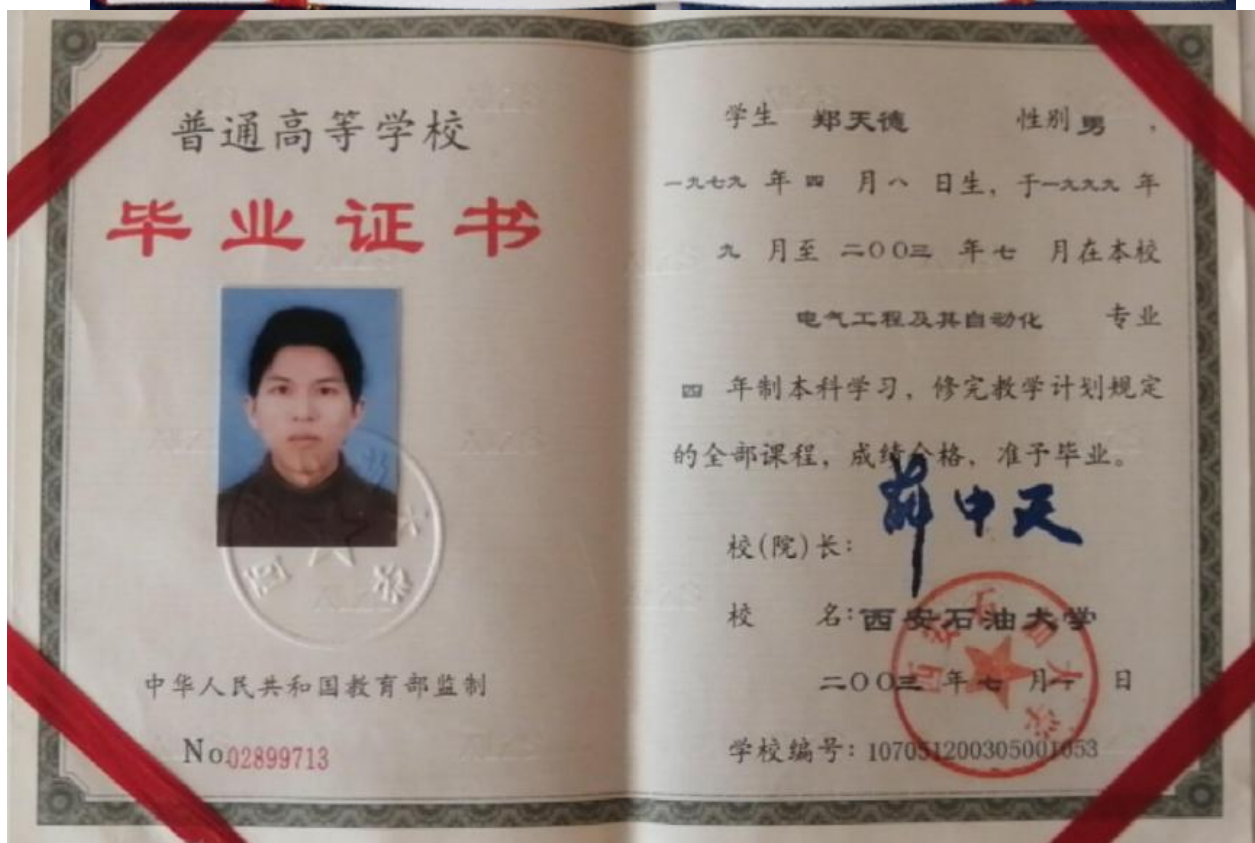 普通高等学校
毕业证书
中华人民共和国教育部监制
No.02899713
学生 郑天德 性别 男 ，
一九七九 年 四 月 八 日生，于一九九九 年
九 月至 二〇〇三 年 七 月在本校
电气工程及其自动化 专业
四 年制本科学习，修完教学计划规定
的全部课程，成绩合格，准予毕业。
校(院)长：
校 名：西安石油大学
二〇〇三 年 七 月 一 日
学校编号：107051200305001053
西安石油大学